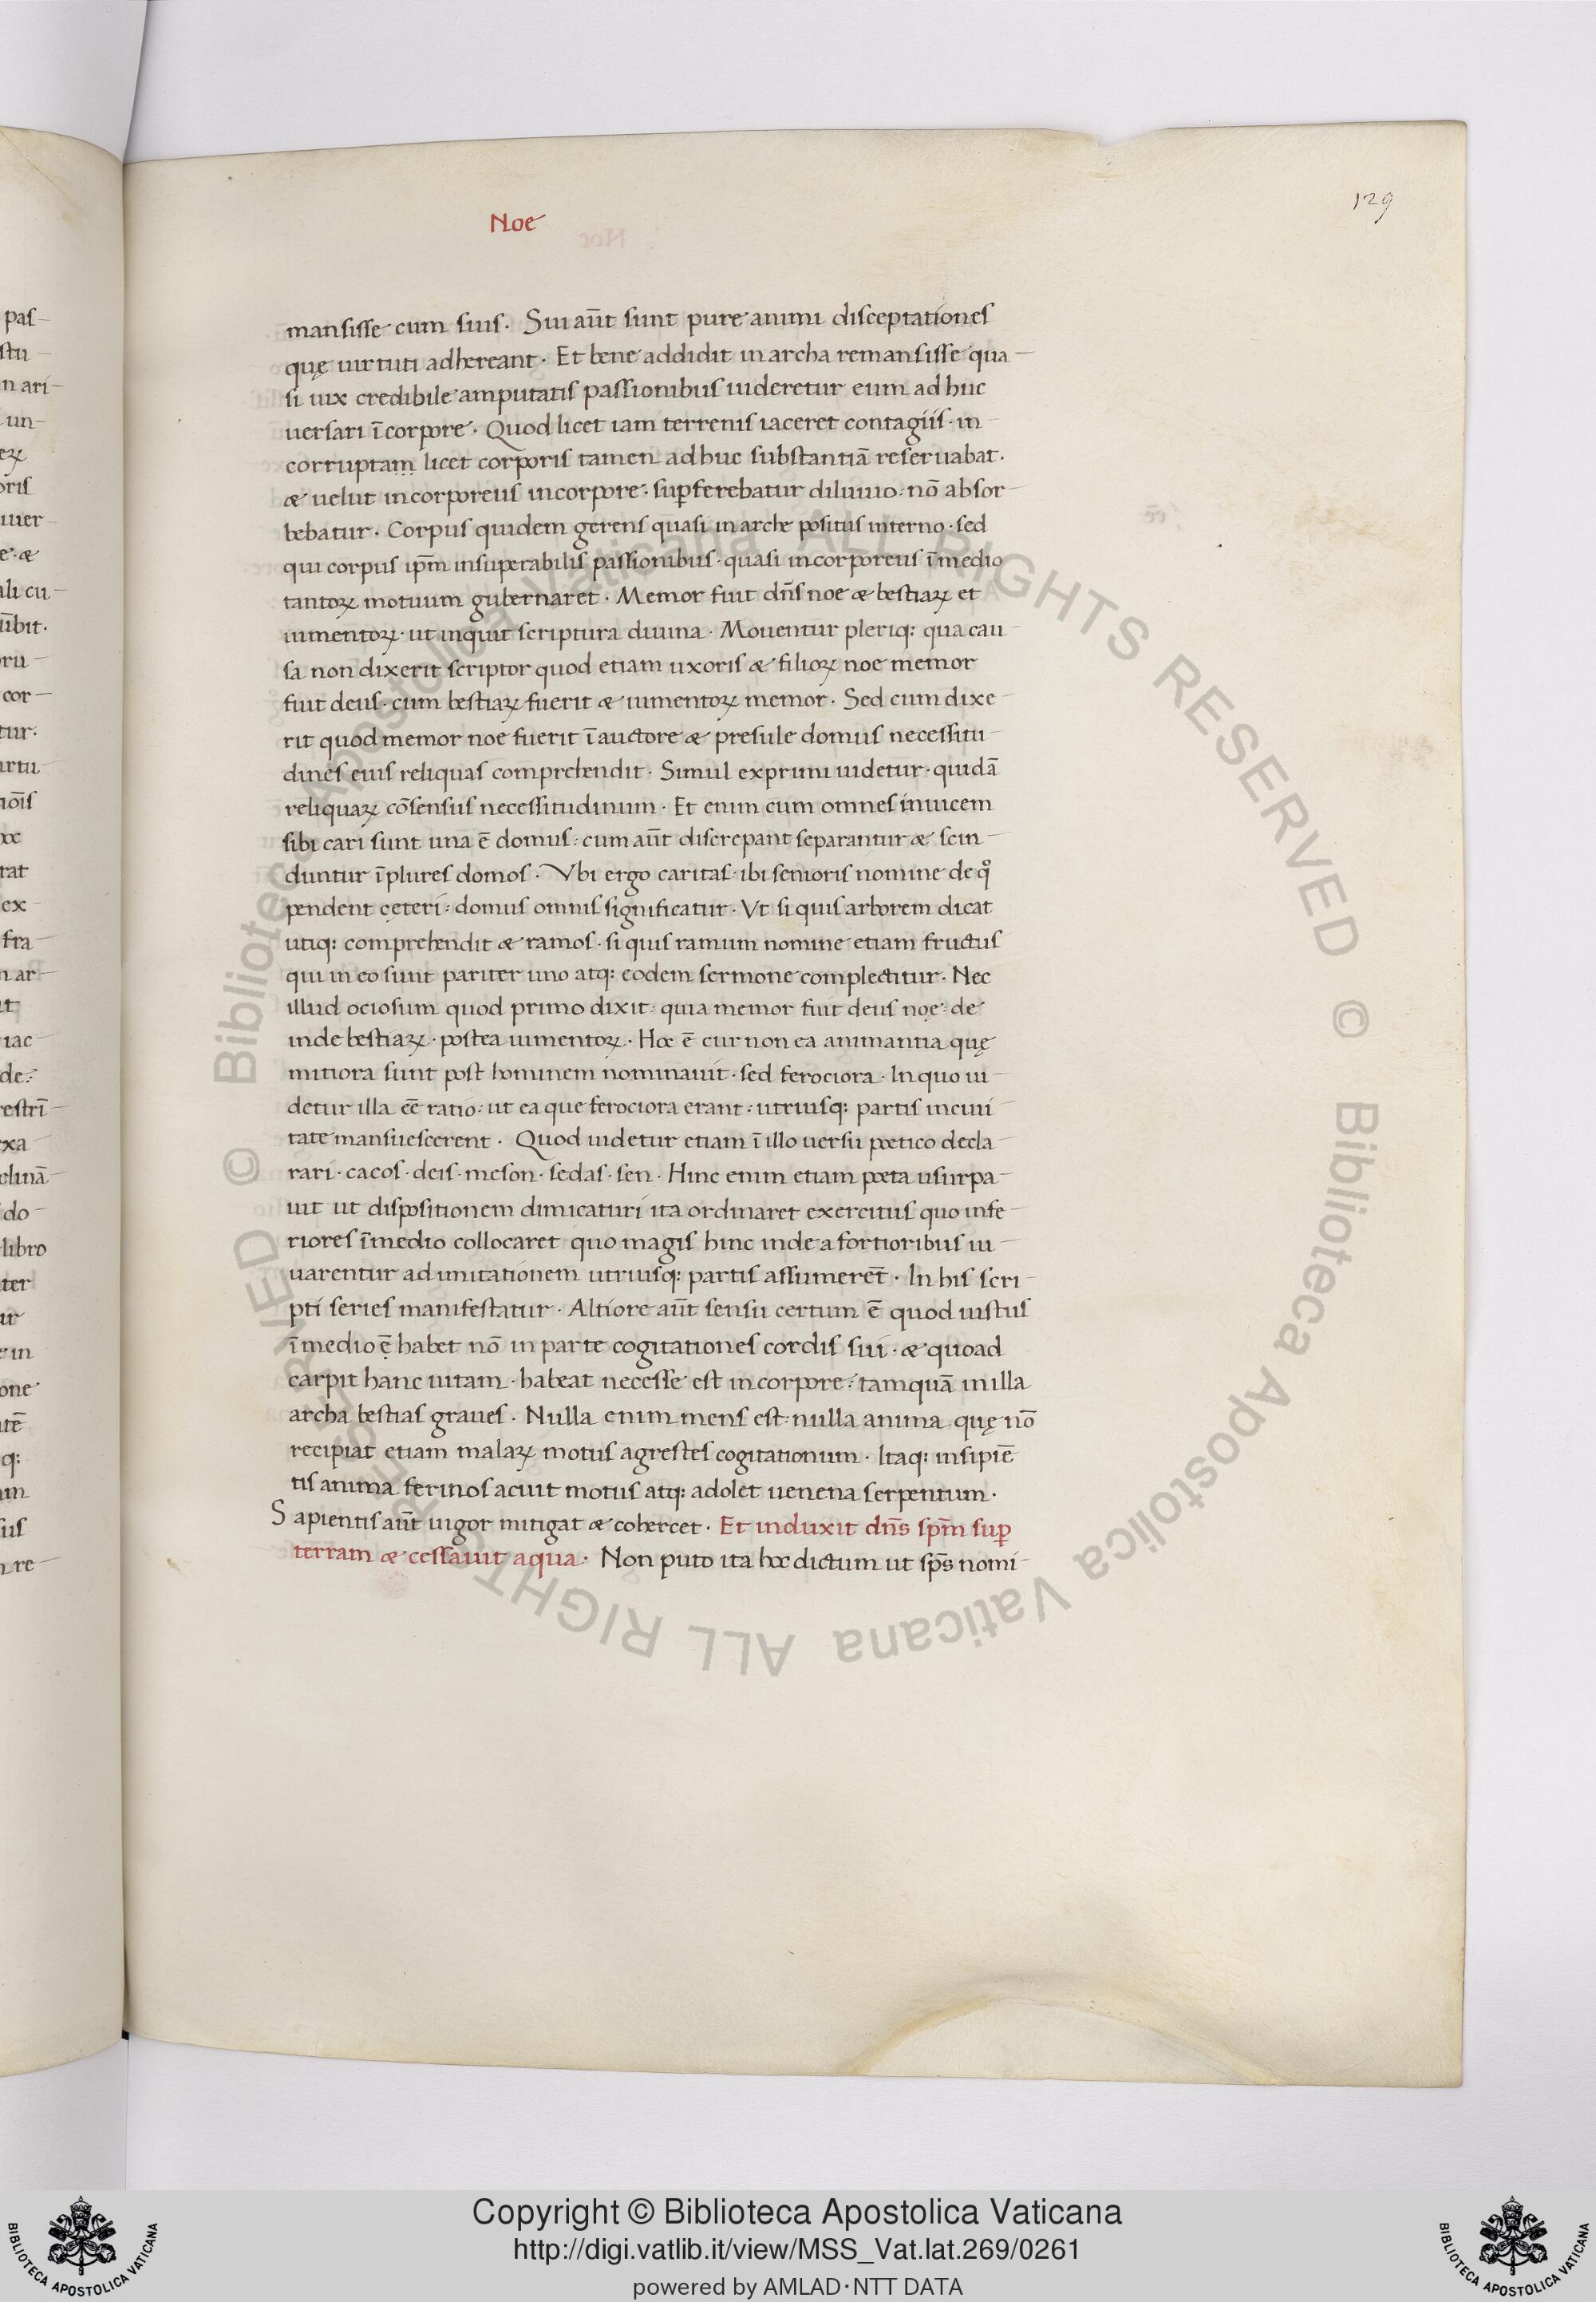 Noe
129
mansisse cum suis. Sui aūt sunt pure animi disceptationes
quę uirtuti adhereant. Et bene addidit in archa remansisse qua-
si uix credibile amputatis passionibus uideretur eum ad huc
uersari ī corpore. Quod licet iam terrenis iaceret contagiis. in-
corruptam licet corporis tamen adhuc substantiā reseruabat.
& uelut incorporeus in corpore. suꝑferebatur diluuio. nō absor-
bebatur. Corpus quidem gerens quasi in arche positus interno. sed
qui corpus ip̄m insuperabilis passionibus. quasi incorporeus ī medio
tantoꝝ motuum gubernaret. Memor fuit dn̄s noe & bestiaꝝ et
iumentoꝝ. ut inquit scriptura diuina. Mouentur pleriq: qua cau-
sa non dixerit scriptor quod etiam uxoris & filioꝝ noe memor
fuit deus. cum bestiaꝝ fuerit & iumentoꝝ memor. Sed cum dixe-
rit quod memor noe fuerit ī auctore & presule domus necessitu-
dines eius reliquas comprehendit. Simul exprimi uidetur. quidā
reliquaꝝ cōsensus necessitudinum. Et enim cum omnes inuicem
sibi cari sunt una ē domus: cum aūt discrepant separantur & scin-
duntur ī plures domos. Vbi ergo caritas. ibi senioris nomine de qͦ
pendent cęteri: domus omnis significatur. Vt si quis arborem dicat
utiq: comprehendit & ramos. si quis ramum nomine etiam fructus
qui in eo sunt pariter uno atq: eodem sermone complectitur. Nec
illud ociosum quod primo dixit: quia memor fuit deus noe: de
inde bestiaꝝ. postea iumentoꝝ. Hoc ē cur non ea animantia quę
mitiora sunt post hominem nominauit. sed ferociora. In quo ui-
detur illa eē ratio: ut ea que ferociora erant: utriusq: partis inciui-
tate mansuescerent. Quod uidetur etiam ī illo uersu poetico decla-
rari. cacos. deis. meson. sedas. sen. Hinc enim etiam poeta usurpa-
uit ut dispositionem dimicaturi ita ordinaret exercitus quo infe-
riores ī medio collocaret quo magis hinc inde a fortioribus iu-
uarentur ad imitationem utriusq: partis assumeret̄. In his scri-
pti series manifestatur. Altiore aūt sensu certum ē quod iustus
ī medio ē habet nō in parte cogitationes cordis sui. & quoad
carpit hanc uitam. habeat necesse est in corpore: tamquā in illa
archa bestias graues. Nulla enim mens est: nulla anima quę nō
recipiat etiam malaꝝ motus agrestes cogitationum. Itaq: insipiē
tis anima ferinos acuit motus atq: adolet uenena serpentum.
Sapientis aūt uigor mitigat & cohercet. Et induxit dn̄s sp̄m suꝑ
terram & cessauit aqua. Non puto ita hoc dictum ut sp̄s nomi-
Copyright © Biblioteca Apostolica Vaticana
http://digi.vatlib.it/view/MSS_Vat.lat.269/0261
powered by AMLAD·NTT DATA